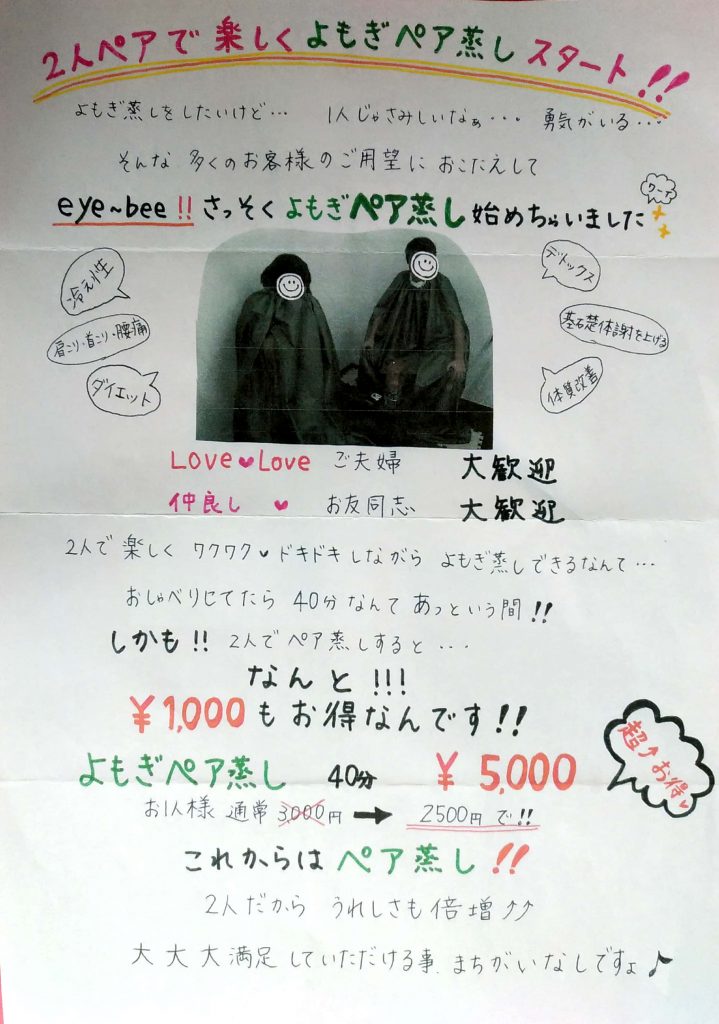 2人ペアで楽しくよもぎペア蒸しスタート!!
よもぎ蒸しをしたいけど… 1人じゃさみしいなぁ・・・ 勇気がいる・・・
そんな 多くのお客様のご用望に おこたえして
eye~bee!! さっそくよもぎペア蒸し始めちゃいました
ワーイ
冷え性
肩こり・首こり・腰痛
ダイエット
デトックス
基石楚体謝を上げる
体質改善
Love♥Love ご夫婦 大歓迎
仲良し ♥ お友同志 大歓迎
2人で楽しく ワクワク♥ドキドキしながら よもぎ蒸しできるなんて…
おしゃべりしてたら 40分なんて あっという間!!
しかも!! 2人でペア蒸しすると・・・
なんと!!!
¥1,000もお得なんです!!
超↑お得♥
よもぎペア蒸し 40分 ¥5,000
お1人様 通常 3,000円 ➡ 2500円で!!
これからはペア蒸し!!
2人だから うれしさも倍増↑↑
大大大満足していただける事、まちがいなしですよ♪